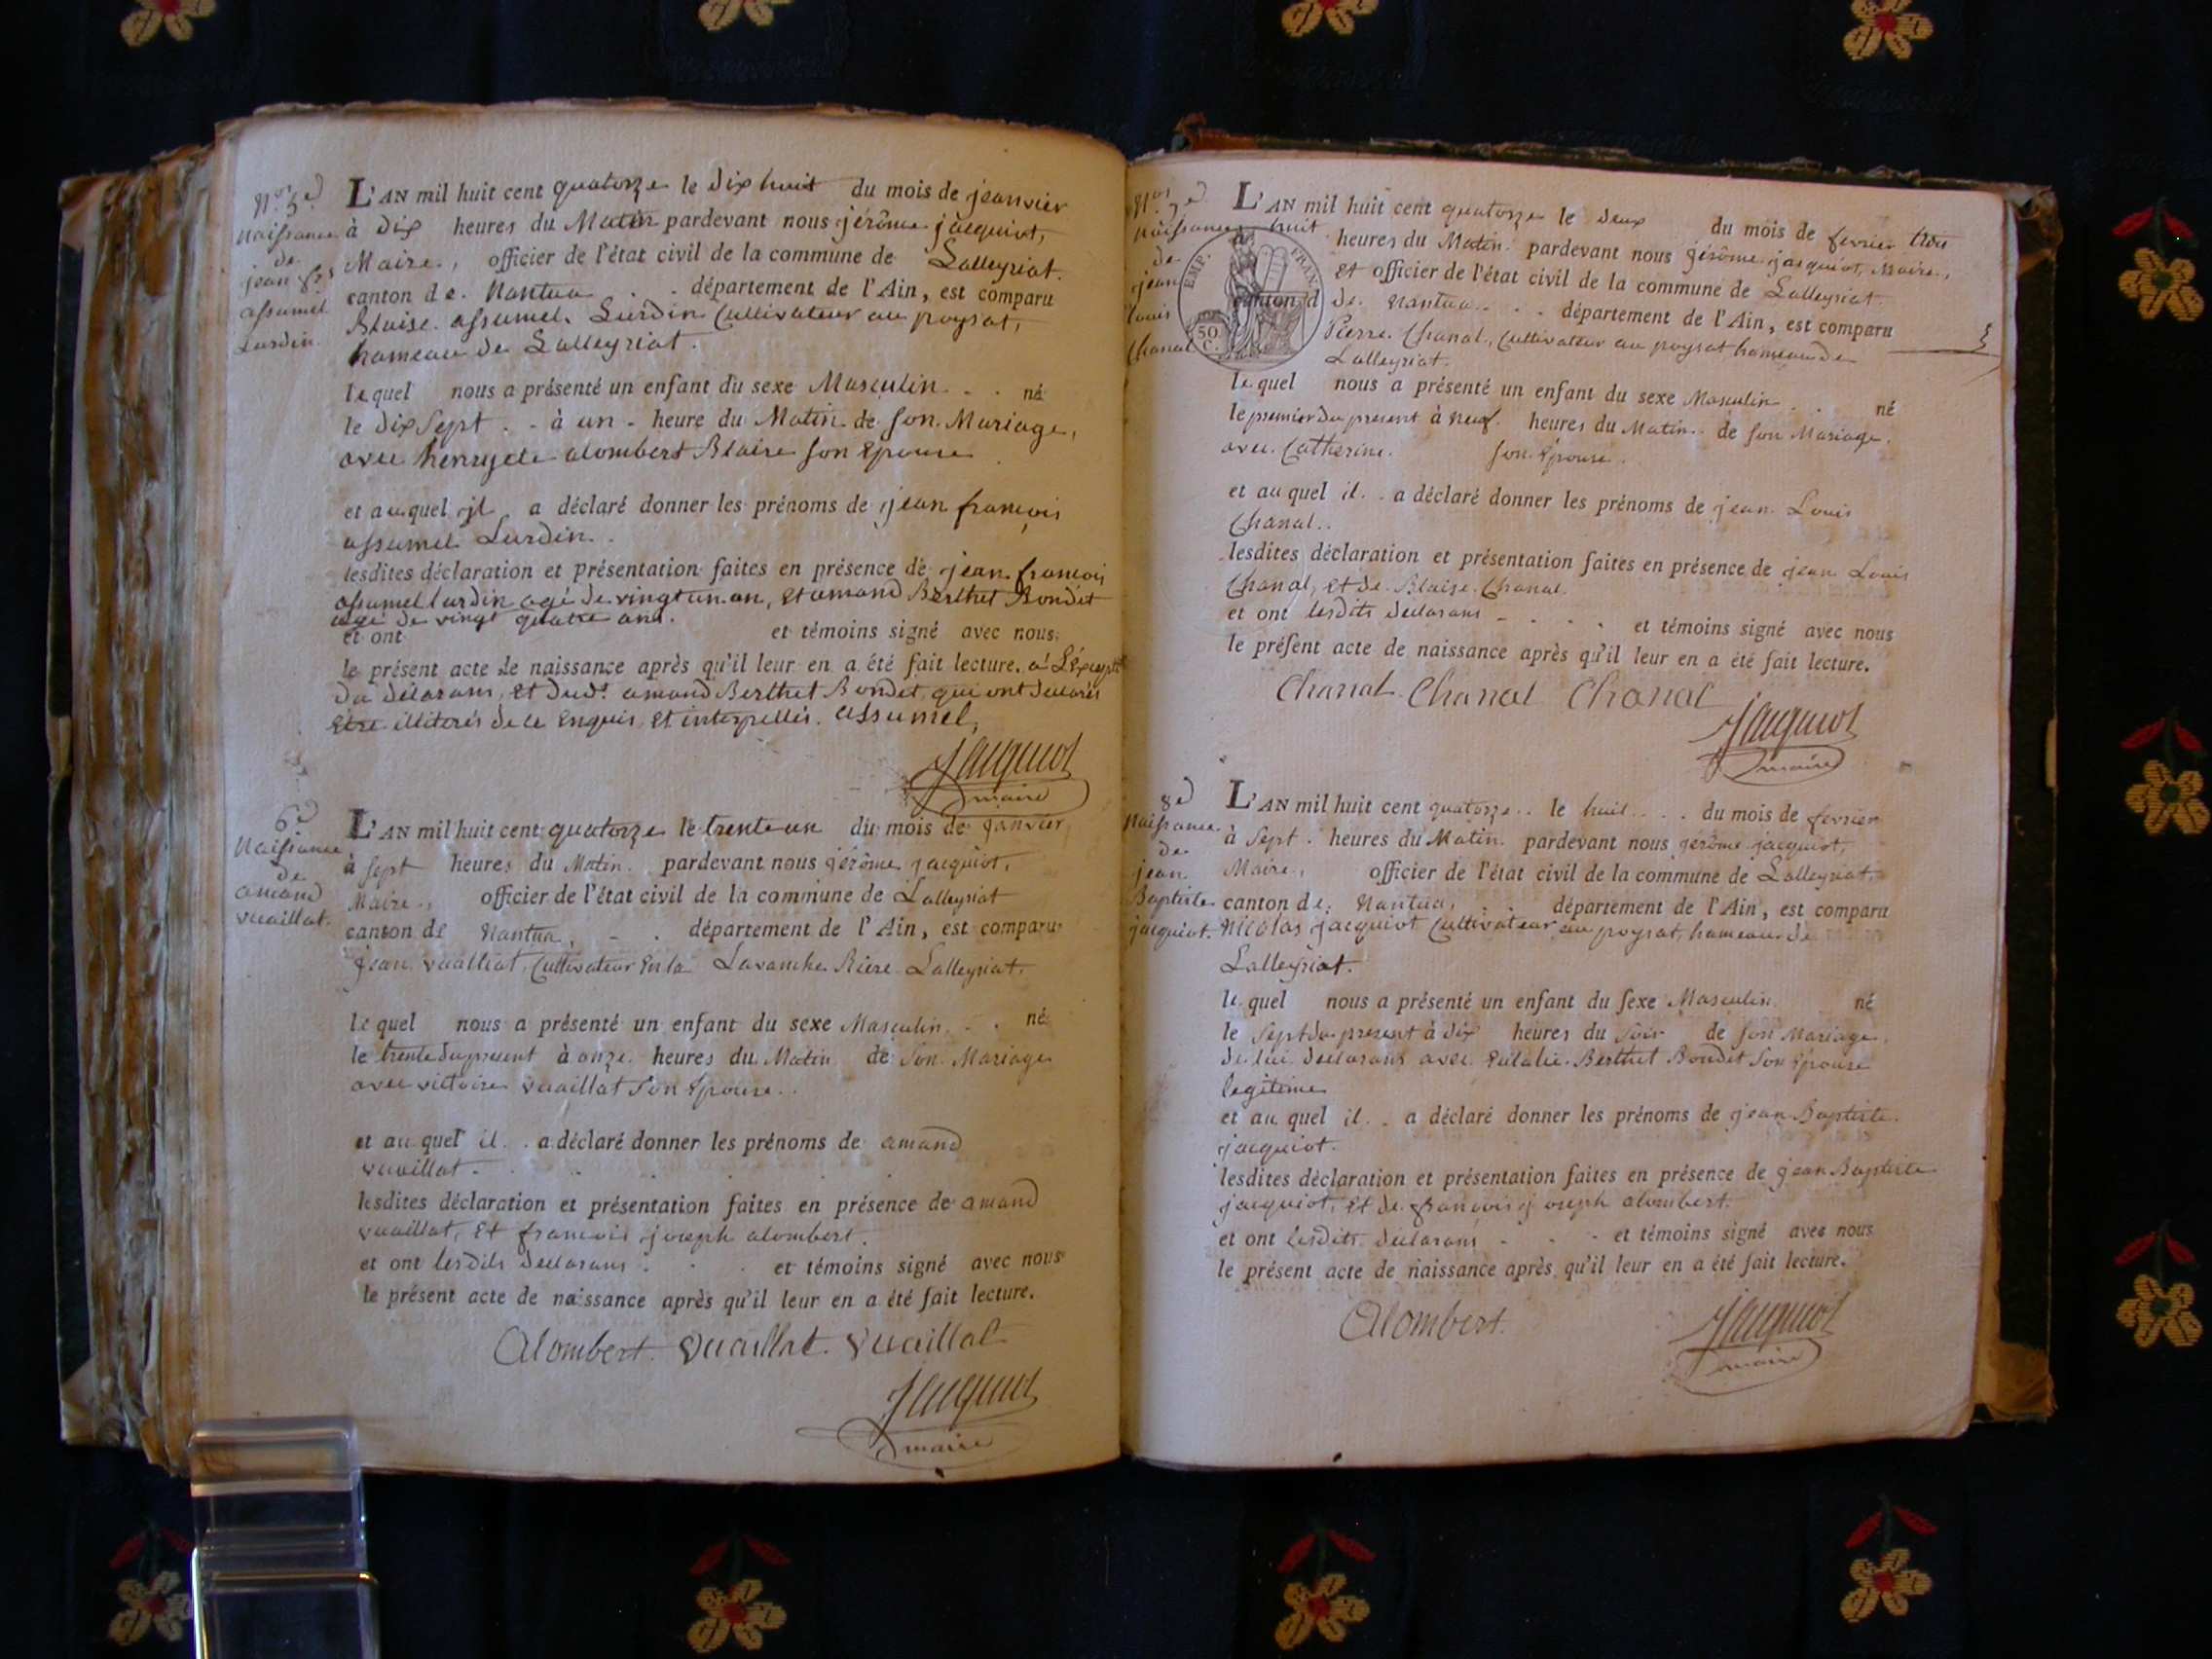 N.º 5.e
Naissance
de
jean fçs
assumel
Lurdin
L'AN mil huit cent quatorze le dix huit du mois de jeanvier
à dix heures du Matin pardevant nous jérôme jacquiot,
Maire, officier de l'état civil de la commune de Lalleyriat.
canton de Nantua département de l'Ain, est comparu
Blaise assumel Lurdin Cultivateur au poysat,
hameau de Lalleyriat.
lequel nous a présenté un enfant du sexe Masculin né
le dix Sept à un heure du Matin de son Mariage,
avec henryete alombert Blaise son Epouse
et auquel il a déclaré donner les prénoms de jean francois
assumel Lurdin.
lesdites déclaration et présentation faites en présence de jean francois
assumel lurdin agé de vingt un an, et amand Berthet Bondet
agé de vingt quatre ans.
et ont et témoins signé avec nous
le présent acte de naissance après qu'il leur en a été fait lecture. a L'Exception
du déclarans, et dud.t amand Berthet Bondet, qui ont declarés
Etre illiterés de ce Enquis et interpellés. assumel,
Jacquiot
maire
6.e
Naissance
de
amand
vuaillat.
L'AN mil huit cent quatorze le trente un du mois de janvier
à sept heures du Matin pardevant nous jérôme jacquiot,
Maire, officier de l'état civil de la commune de Lalleyriat
canton de Nantua, département de l'Ain, est comparu
jean vuaillat, Cultivateur En la Lavanche Riere Lalleyriat.
lequel nous a présenté un enfant du sexe Masculin né
le trente du present à onze heures du Matin de son Mariage
avec victoire vuaillat son Epouse.
et auquel il a déclaré donner les prénoms de amand
vuaillat.
lesdites déclaration et présentation faites en présence de amand
vuaillat, et francois joseph alombert.
et ont lesdits declarans et témoins signé avec nous
le présent acte de naissance après qu'il leur en a été fait lecture.
Alombert. vuaillat. vuaillat
Jacquiot
maire
N.º 7.e
Naissance
de
jean
Louis
Chanal
EMP. FRAN.
50
C.
L'AN mil huit cent quatorze le deux du mois de fevrier
huit heures du Matin pardevant nous jérôme jacquiot, Maire,
et officier de l'état civil de la commune de Lalleyriat.
canton d de Nantua département de l'Ain, est comparu
Pierre Chanal, Cultivateur au poysat hameau de
Lalleyriat.
lequel nous a présenté un enfant du sexe Masculin né
le premier du present à neuf heures du Matin de son Mariage.
avec Catherine son Epouse.
et auquel il a déclaré donner les prénoms de jean Louis
Chanal.
lesdites déclaration et présentation faites en présence de jean Louis
Chanal, et de Blaise Chanal.
et ont lesdits declarans et témoins signé avec nous
le présent acte de naissance après qu'il leur en a été fait lecture.
Chanal. Chanal Chanal
Jacquiot
maire
8.e
Naissance
de
jean
Baptiste
jacquiot.
L'AN mil huit cent quatorze le huit du mois de fevrier
à sept heures du Matin pardevant nous jérôme jacquiot,
Maire, officier de l'état civil de la commune de Lalleyriat.
canton de Nantua, département de l'Ain, est comparu
Nicolas jacquiot Cultivateur au poysat, hameau de
Lalleyriat.
lequel nous a présenté un enfant du sexe Masculin né
le sept du present à dix heures du soir de son Mariage
de lui declarans avec Eulalie Berthet Bondet son Epouse
legitime
et auquel il a déclaré donner les prénoms de jean Baptiste
jacquiot.
lesdites déclaration et présentation faites en présence de jean Baptiste
jacquiot, et de françois joseph alombert.
et ont Lesdits declarans et témoins signé avec nous
le présent acte de naissance après qu'il leur en a été fait lecture.
Alombert. Jacquiot
maire